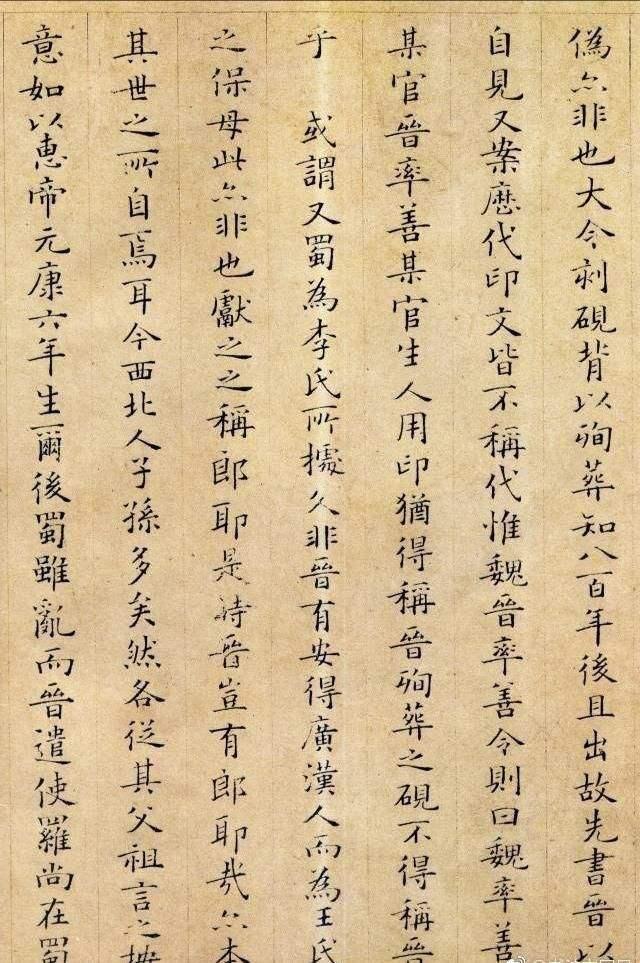 偽亦非也大令刻硯背以殉葬知八百年後且出故先書晉以
自見又案歷代印文皆不稱代惟魏晉率善令則曰魏率善
某官晉率善某官生人用印猶得稱晉殉葬之硯不得稱晉
乎　或謂又蜀為李氏所據久非晉有安得廣漢人而為王氏
之保母此亦非也獻之之稱郎耶是時晉豈有郎耶哉亦本
其世之所自焉耳今西北人子孫多矣然各從其父祖言之
意如以惠帝元康六年生爾後蜀雖亂而晉遣使羅尚在蜀